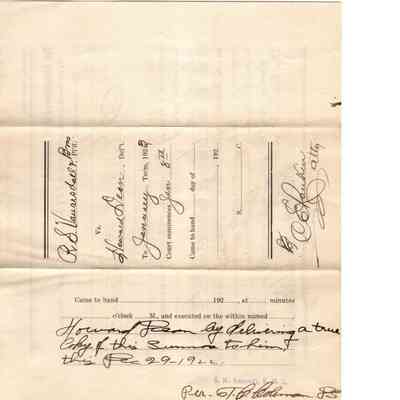 R. S. Vanarsdall & Bros
Pltf.
Vs.
Howard Dean, Deft.
To January Term, 1923
Court commences Jan 8th
Came to hand
day of
, 192
S. C.
By C. E. Rankin
Atty
Came to hand 192 , at minutes
o'clock M., and executed on the within named
Howard Dean by delivering a true
Coby of this Summons to him,
this Dec 29-1922
Per. Coleman DS